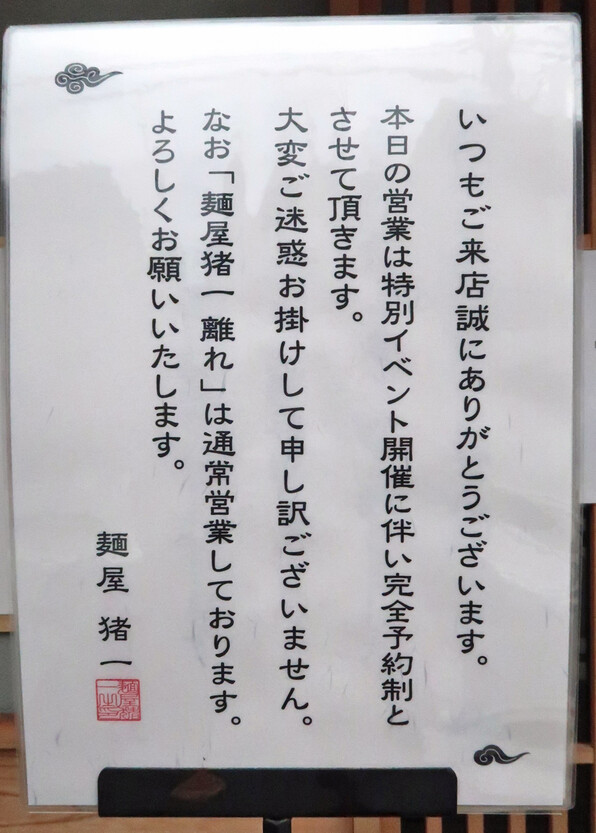 いつもご来店誠にありがとうございます。
本日の営業は特別イベント開催に伴い完全予約制と
させて頂きます。
大変ご迷惑お掛けして申し訳ございません。
なお「麺屋猪一 離れ」は通常営業しております。
よろしくお願いいたします。
麺屋 猪一